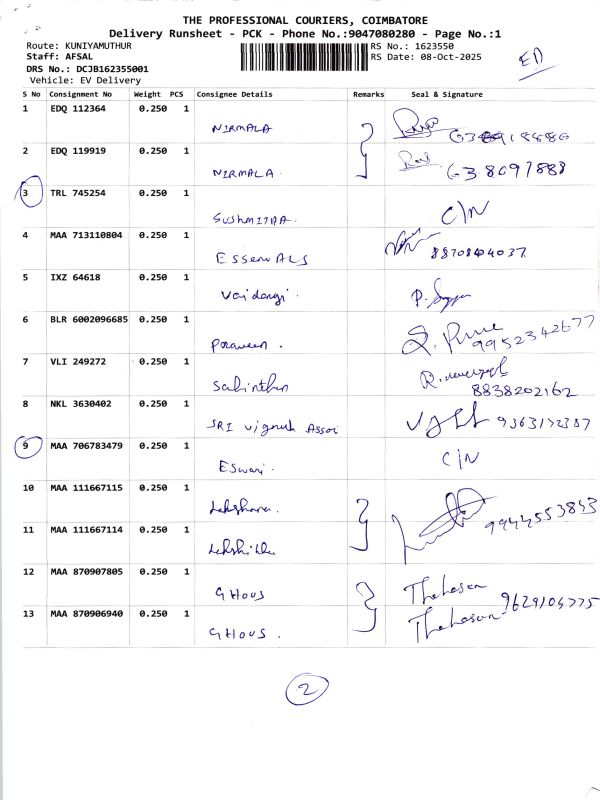 THE PROFESSIONAL COURIERS, COIMBATORE
Delivery Runsheet - PCK - Phone No.:9047080280 - Page No.:1
Route: KUNIYAMUTHUR
Staff: AFSAL
DRS No.: DCJB162355001
Vehicle: EV Delivery
RS No.: 1623550
RS Date: 08-Oct-2025
S No Consignment No Weight PCS Consignee Details Remarks Seal & Signature
1 EDQ 112364 0.250 1
NIRMALA
2 EDQ 119919 0.250 1
NIRMALA. 638097888
3 TRL 745254 0.250 1
C/N
4 MAA 713110804 0.250 1
5 IXZ 64618 0.250 1
6 BLR 6002096685 0.250 1
Praveen. 9952342677
7 VLI 249272 0.250 1
8838202162
8 NKL 3630402 0.250 1
SRI Vignesh Assoi
9 MAA 706783479 0.250 1
Eswari. C/N
10 MAA 111667115 0.250 1
9944553843
11 MAA 111667114 0.250 1
12 MAA 870907805 0.250 1
GHOUS Thahasen
13 MAA 870906940 0.250 1
GHOUS. Thahasan
2